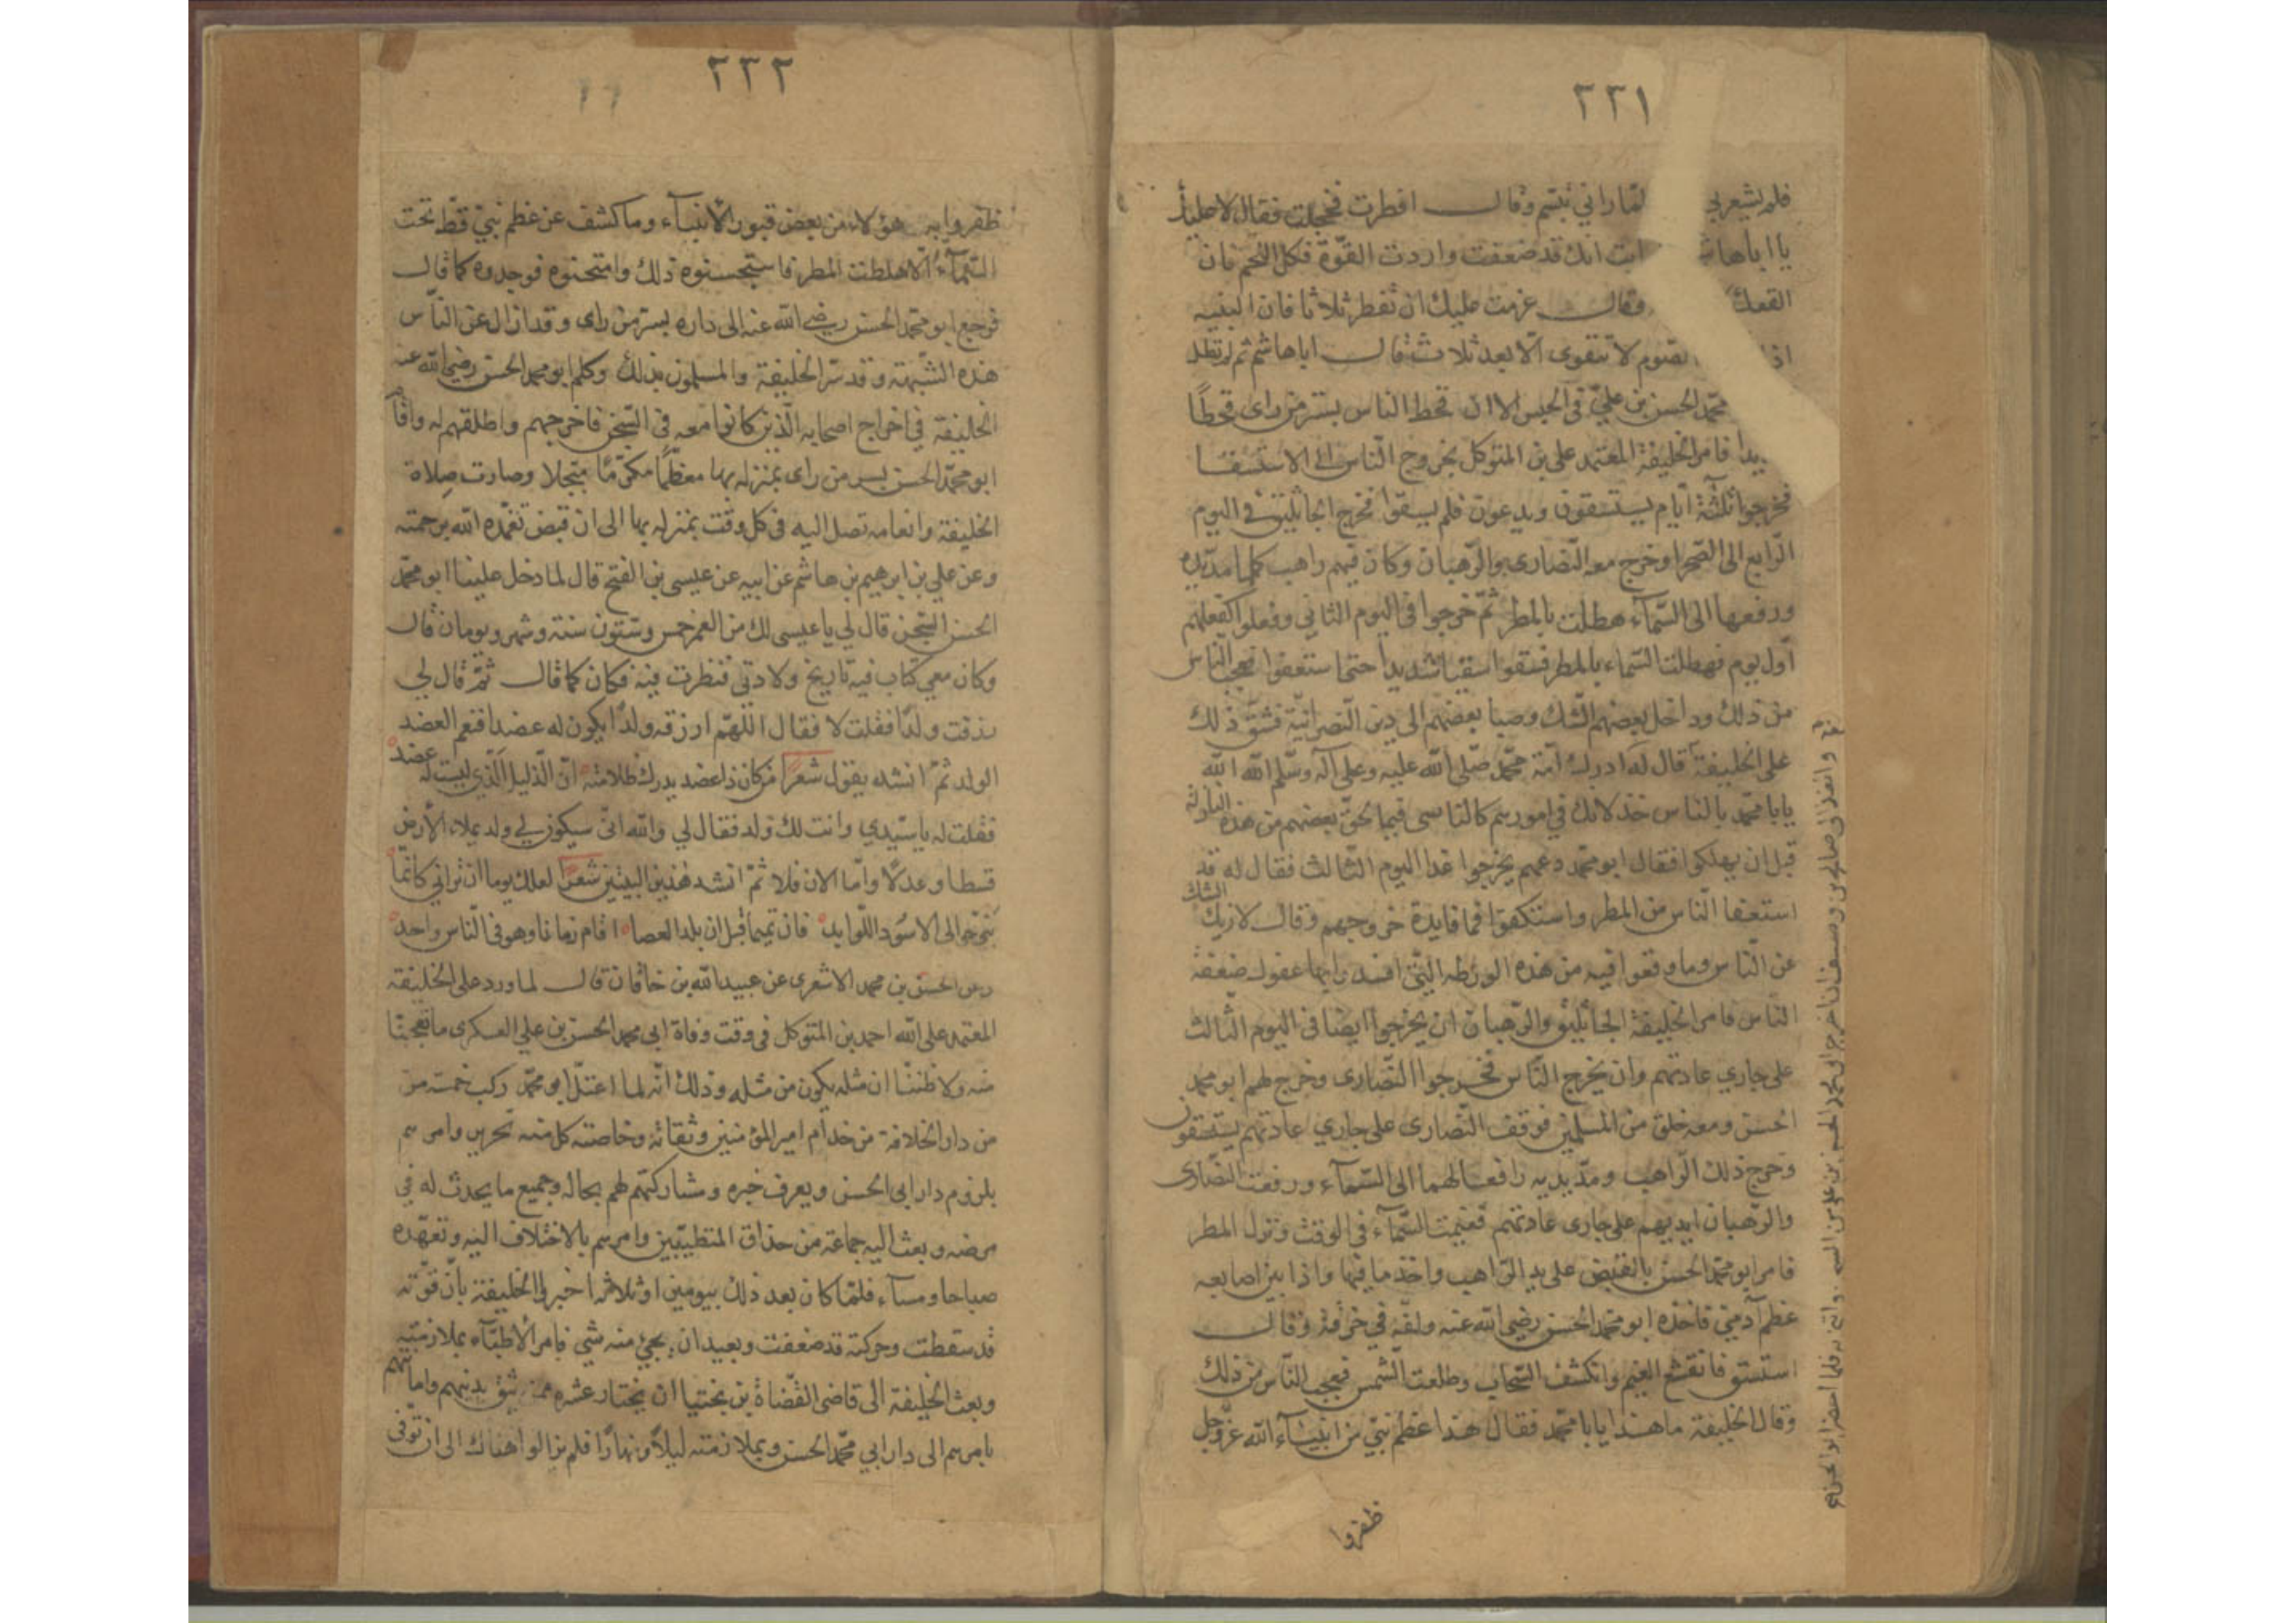 ٢٢١
فلم يشعر بي لما راني تبسم وقال افطرت فخجلت فقال لا عليك
يا ابا هاشم انك قد ضعفت واردت القوة فكل اللحم فان
القعك وقال عزمت عليك ان تفطر ثلاثا فان البنيه
اذا الصوم لا تتقوى الا بعد ثلاث قال ابا هاشم ثم لم تطل
محمد الحسن بن علي في الحبس الا ان قحط الناس بسر من راى قحطًا
يدا فامر الخليفة المعتمد على بن المتوكل بخروج الناس الى الاستسقا
فخرجوا ثلثة ايام يستسقون ويدعون فلم يسقوا فخرج الجاثليق في اليوم
الرابع الى الصحرا وخرج معه النصارى والرهبان وكان فيهم راهب كلما مد يده
ورفعها الى السماء هطلت بالمطر ثم خرجوا في اليوم الثاني وفعلوا كفعلهم
اول يوم فهطلت السماء بالمطر فسقوا سقيا شديدا حتى استعفوا فعجب الناس
من ذلك وداخل بعضهم الشك وصبا بعضهم الى دين النصرانية فشق ذلك
على الخليفة قال له ادرك امة محمد صلى الله عليه وعلى آله وسلم الله الله
يابا محمد بالناس فيما لحق بعضهم من هذه النازلة
قبل ان يهلكوا فقال ابو محمد دعهم يخرجوا غدا اليوم الثالث فقال له قد
استعفا الناس من المطر واستكفوا فما فايدة خروجهم وقال لازيل الشك
عن الناس وما وقعوا فيه من هذه الورطه التي افسدوا بها عقول ضعفة
الناس فامر الخليفة الجاثليق والرهبان ان يخرجوا ايضا في اليوم الثالث
على جاري عادتهم وان يخرج الناس فخرجوا النصارى وخرج لهم ابو محمد
الحسن ومعه خلق من المسلمين فوقف النصارى على جاري عادتهم يستسقون
وخرج ذلك الراهب ومد يديه رافعا لهما الى السماء ورفعت النصارى
والرهبان ايديهم على جارى عادتهم فغيمت السماء في الوقت ونزل المطر
فامر ابو محمد الحسن بالقبض على يد الراهب واخذ ما فيها واذا بين اصابعه
عظم آدمي فاخذه ابو محمد الحسن رضي الله عنه ولفه في خرقة وقال
استسق فانقشع الغيم وانكشف السحاب وطلعت الشمس فعجب الناس من ذلك
وقال الخليفة ما هذا يابا محمد فقال هذا عظم نبي من انبياء الله عز وجل
ظفروا
٢٢٢
ظفروا به هؤلاء من بعض قبور الانبياء وما كشف عن عظم نبي قط تحت
السماء الا هطلت المطر فاستحسنوه ذلك وامتحنوه فوجدوه كما قال
فرجع ابو محمد الحسن رضي الله عنه الى داره بسر من راى وقد ازال عن الناس
هذه الشبهة وقد سر الخليفة والمسلمون بذلك وكلم ابو محمد الحسن رضي الله عنه
الخليفة في اخراج اصحابه الذين كانوا معه في السجن فاخرجهم واطلقهم له واقام
ابو محمد الحسن بسر من راى بمنزله بها معظمًا مكرمًا مبجلا وصارت صلاة
الخليفة وانعامه تصل اليه في كل وقت بمنزله بها الى ان قبض تغمده الله برحمته
وعن علي بن ابرهيم بن هاشم عن ابيه عن عيسى بن الفتح قال لما دخل علينا ابو محمد
الحسن السجن قال لي يا عيسى لك من العمر خمس وستون سنة وشهر ويومان قال
وكان معي كتاب فيه تاريخ ولادتي فنظرت فيه فكان كما قال ثم قال لي
رزقت ولدًا فقلت لا فقال اللهم ارزقه ولدًا يكون له عضدا فنعم العضد
الولد ثم انشد يقول شعرًا من كان ذا عضد يدرك ظلامته ان الذليل الذي ليست له عضد
فقلت له يا سيدي وانت لك ولد فقال لي والله اني سيكون لي ولد يملاء الأرض
قسطا وعدلًا واما الان فلا ثم انشد هذين البيتين شعرًا لعلك يوما ان تراني كانما
بنو حوالي الاسود اللوابد فان تميما قبل ان يلد العصا اقام زمانا وهو في الناس واحد
وعن الحسن بن محمد الاشعري عن عبيد الله بن خاقان قال لما ورد على الخليفة
المعتمد على الله احمد بن المتوكل في وقت وفاة ابي محمد الحسن بن علي العسكرى ما تعجبنا
منه ولا ظننا ان مثله يكون من مثله وذلك انه لما اعتل ابو محمد ركب خمسة من
من دار الخلافة من خدام امير المؤمنين وثقاته وخاصته كل منه نحرير وامرهم
بلزوم دار ابى الحسن ويعرف خبره ومشاركتهم لهم بحاله وجميع ما يحدث له في
مرضه وبعث اليه جماعة من حذاق المتطببين وامرهم بالاختلاف اليه وتعهده
صباحا ومساء فلما كان بعد ذلك بيومين او ثلاثه اخبر الى الخليفة بان قوته
قد سقطت وحركته قد ضعفت وبعيد ان يجيئ منه شي فامر الأطباء بملازمته
وبعث الخليفة الى قاضى القضاة بن بختيا ان يختار عشره ممن يثق بدينهم وامانتهم
يامرهم الى دار ابي محمد الحسن وبملازمته ليلًا ونهارًا فلم يزالوا هناك الى ان توفى